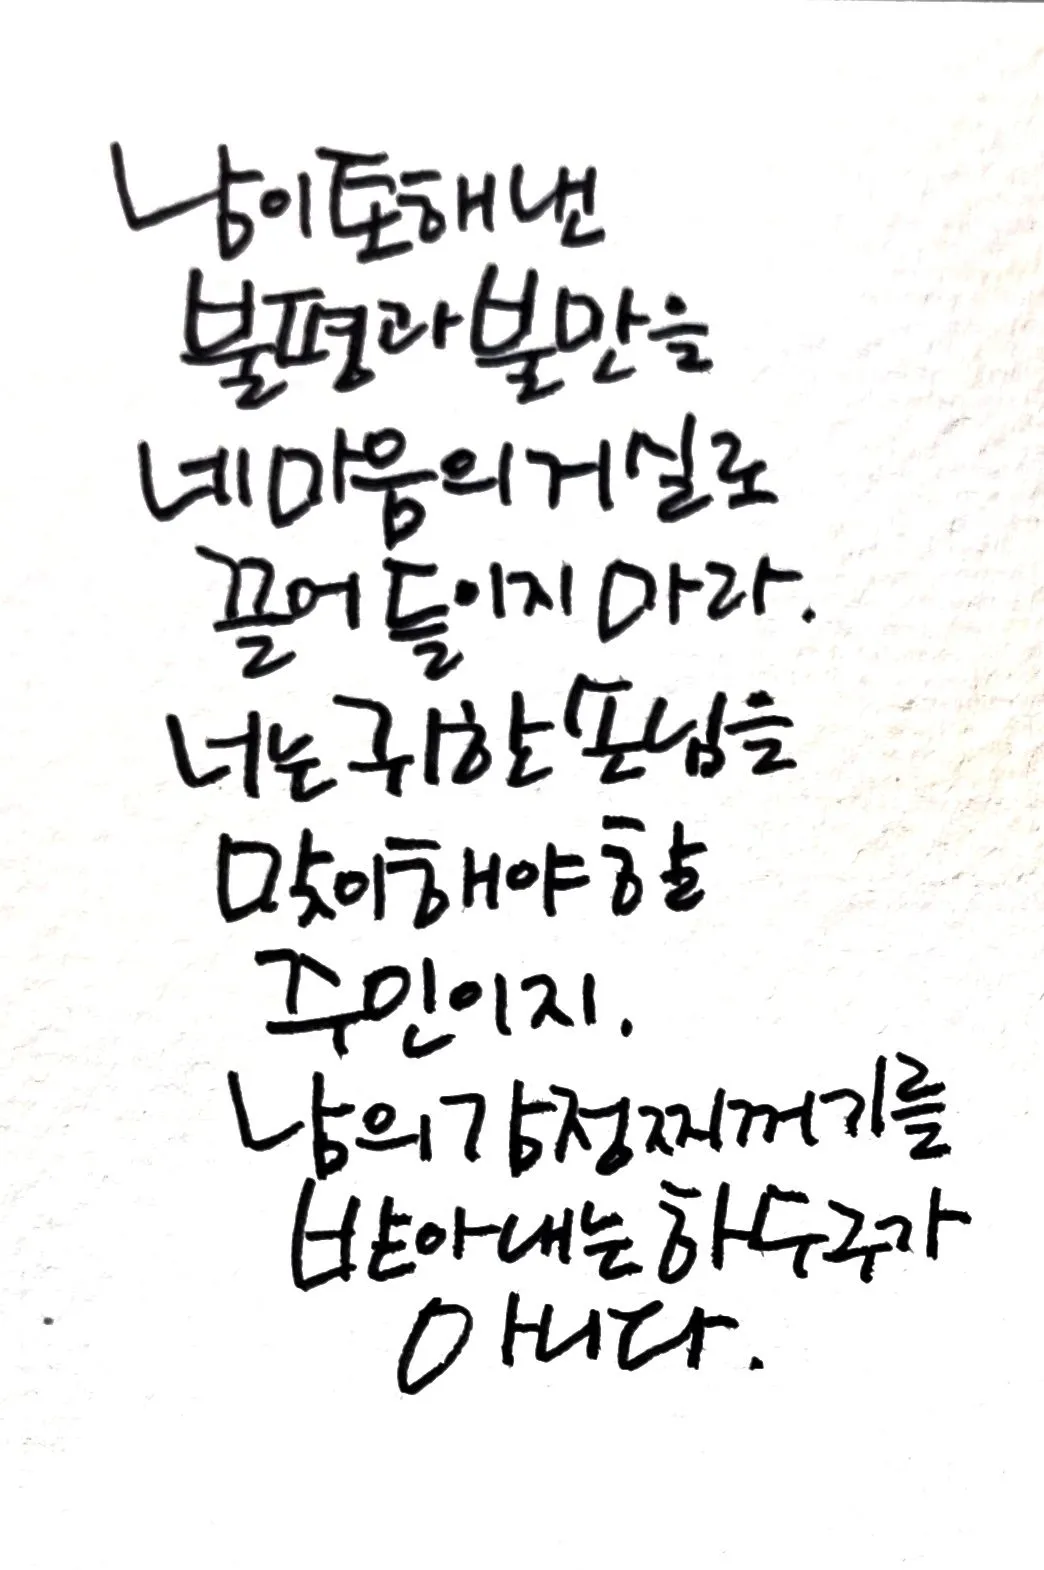 남이 토해 낸
불평과 불만을
네 마음의 거실로
끌어 들이지 마라.
너는 귀한 손님을
맞이해야 할
주인이지.
남의 감정 찌꺼기를
받아내는 하수구가
아니다.